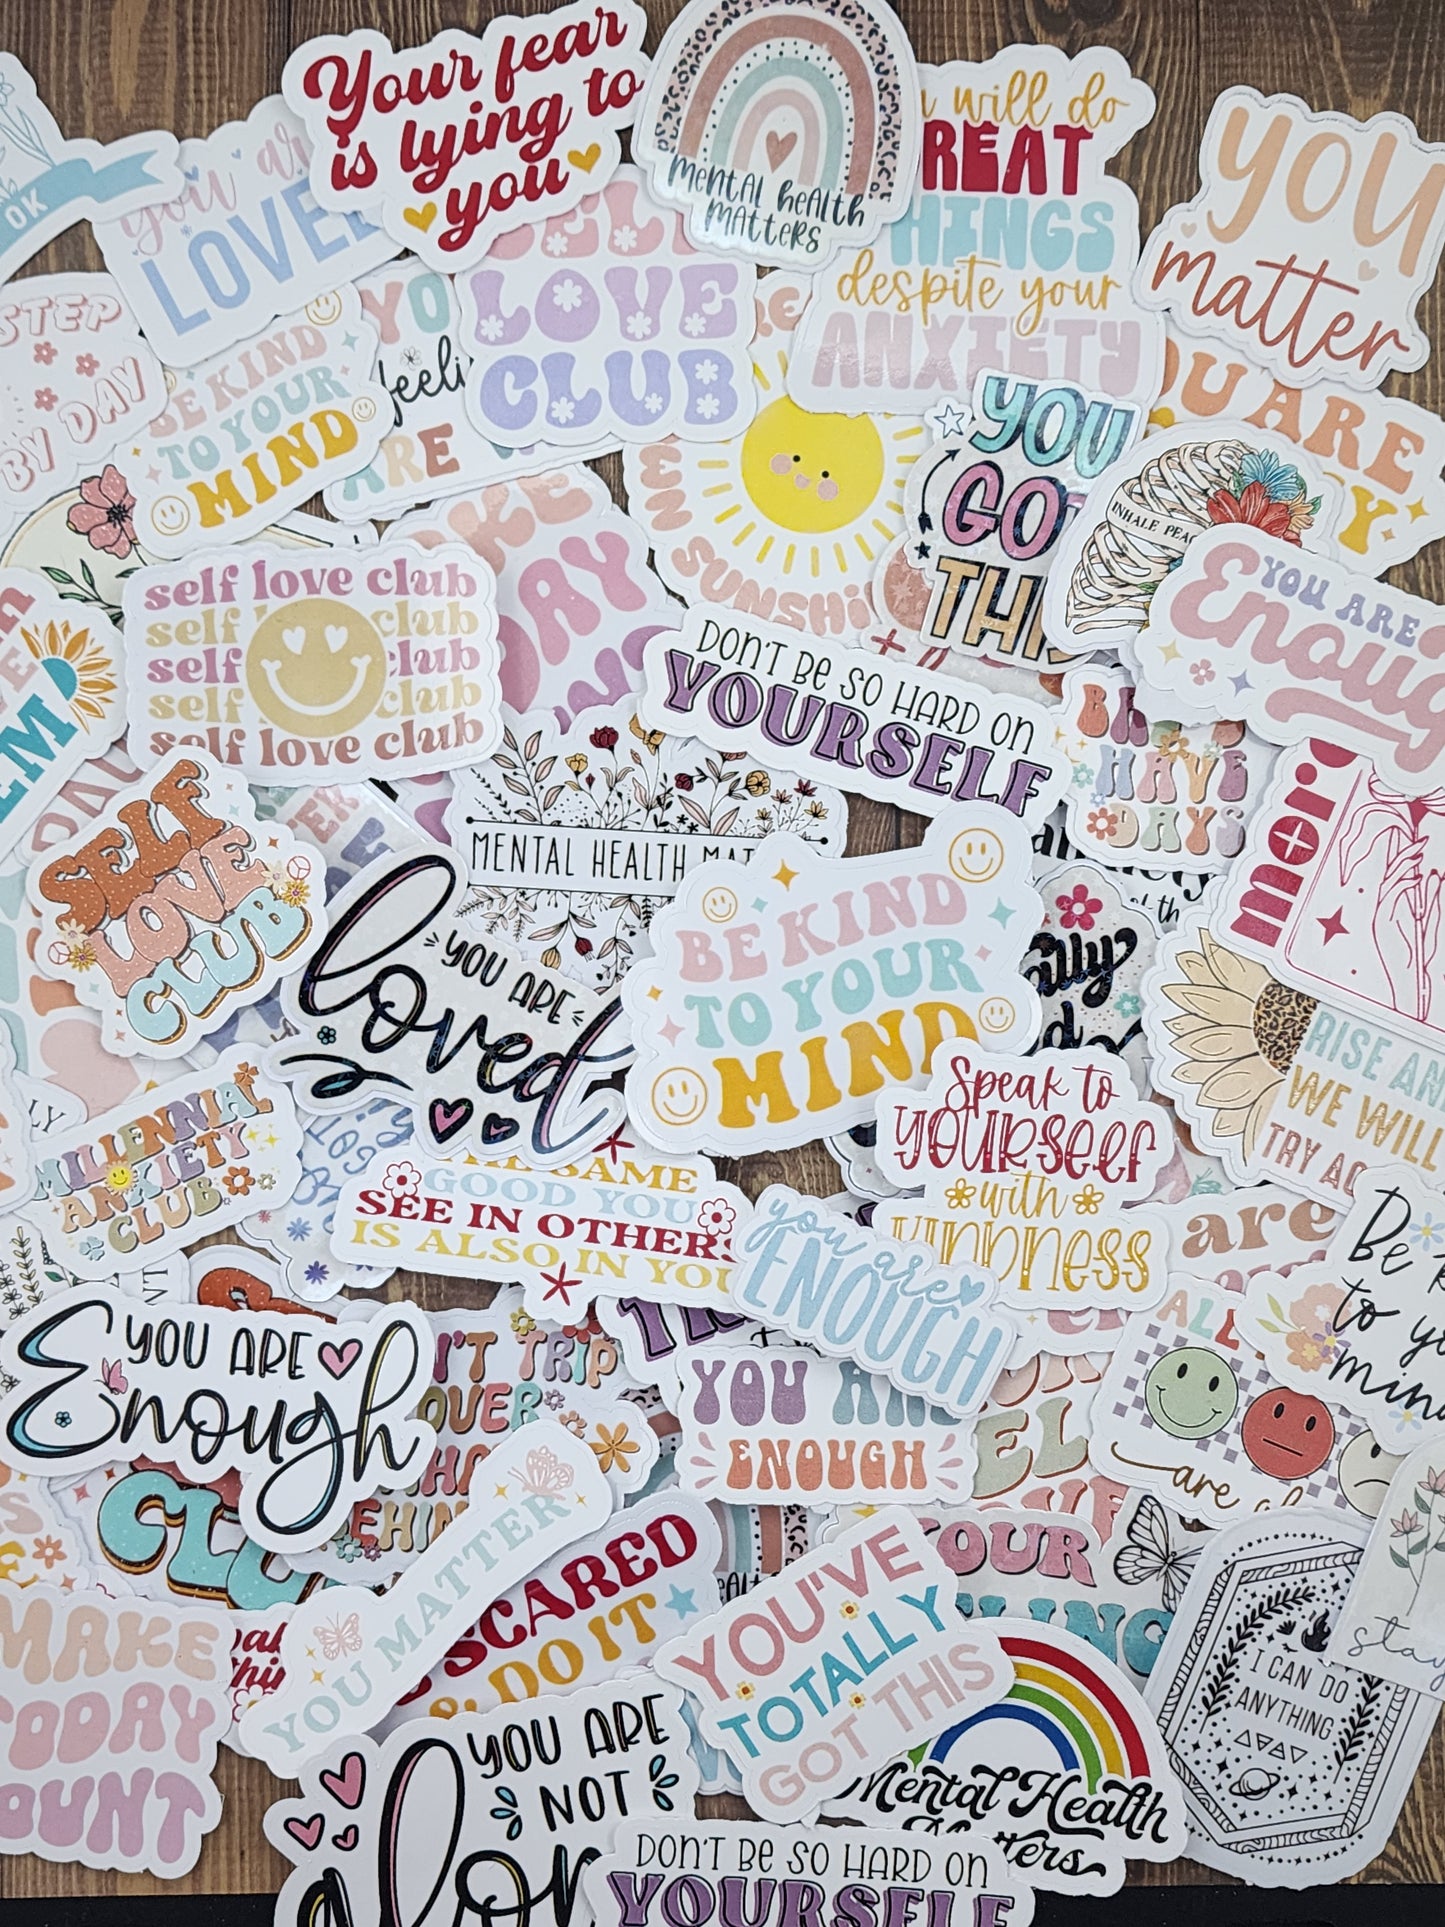 OK
you are
LOVED
Your fear
is lying to
you
mental health
matters
will do
GREAT
THINGS
despite your
ANXIETY
you
matter
STEP
BY DAY
BE KIND
TO YOUR
MIND
YO
feeli
ARE
SELF
LOVE
CLUB
SUNSHI
YOU
GOT
THIS
YOU ARE
INHALE PEAC
YOU ARE
Enoug
self love club
self club
self club
self club
self love club
DON'T BE SO HARD ON
YOURSELF
HAVE
DAYS
SELF
LOVE
CLUB
MENTAL HEALTH MAT
YOU ARE
loved
BE KIND
TO YOUR
MIND
RISE AN
WE WILL
TRY AG
MILLENNIAL
ANXIETY
CLUB
SAME
GOOD YOU
SEE IN OTHERS
IS ALSO IN YOU
Speak to
yourself
with
kindness
you are
ENOUGH
are
Be k
to yo
mind
YOU ARE
Enough
N'T TRIP
OVER
YOU ARE
ENOUGH
ALL
are
YOU MATTER
SCARED
& DO IT
CLU
MAKE
TODAY
OUNT
YOU'VE
TOTALLY
GOT THIS
YOUR
I CAN DO
ANYTHING
stay
YOU ARE
NOT
alon
Mental Health
Matters
DON'T BE SO HARD ON
YOURSELF